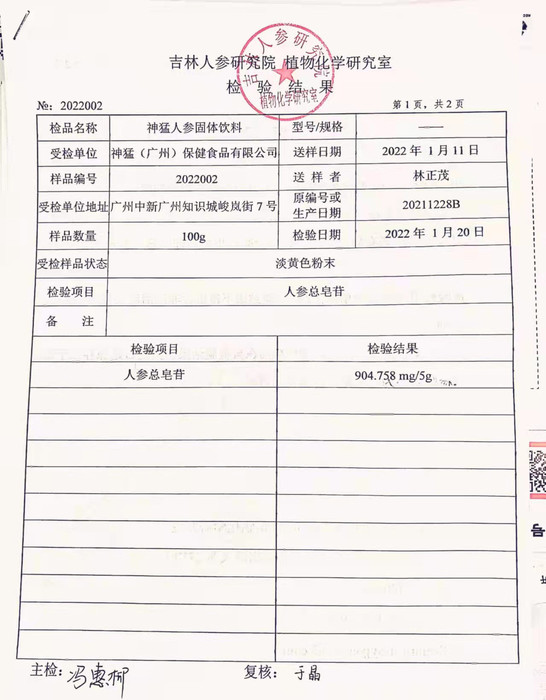 吉林人参研究院 植物化学研究室
检 验 结 果
吉林人参研究院
植物化学研究室
№: 2022002
第 1 页，共 2 页
检品名称 神猛人参固体饮料 型号/规格 ——
受检单位 神猛（广州）保健食品有限公司 送样日期 2022 年 1 月 11 日
样品编号 2022002 送 样 者 林正茂
受检单位地址 广州中新广州知识城峻岚街 7 号 原编号或生产日期 20211228B
样品数量 100g 检验日期 2022 年 1 月 20 日
受检样品状态 淡黄色粉末
检验项目 人参总皂苷
备 注
检验项目 检验结果
人参总皂苷 904.758 mg/5g
主检: 冯惠柳 复核: 于晶
号